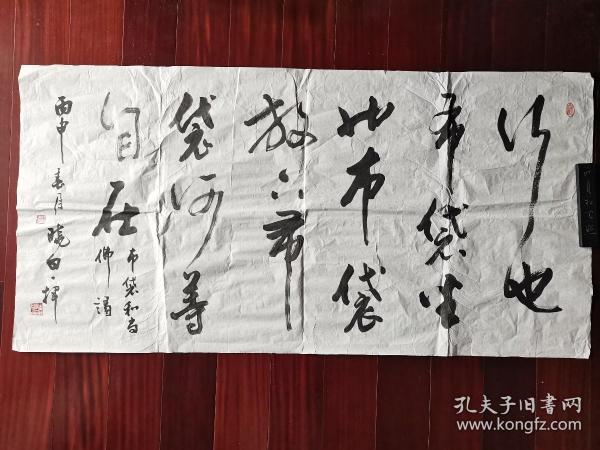 行也
布袋坐
也布袋
放下布
袋何等
自在
布袋和尚
佛偈
丙申春月晓白挥
孔夫子旧书网
www.kongfz.com